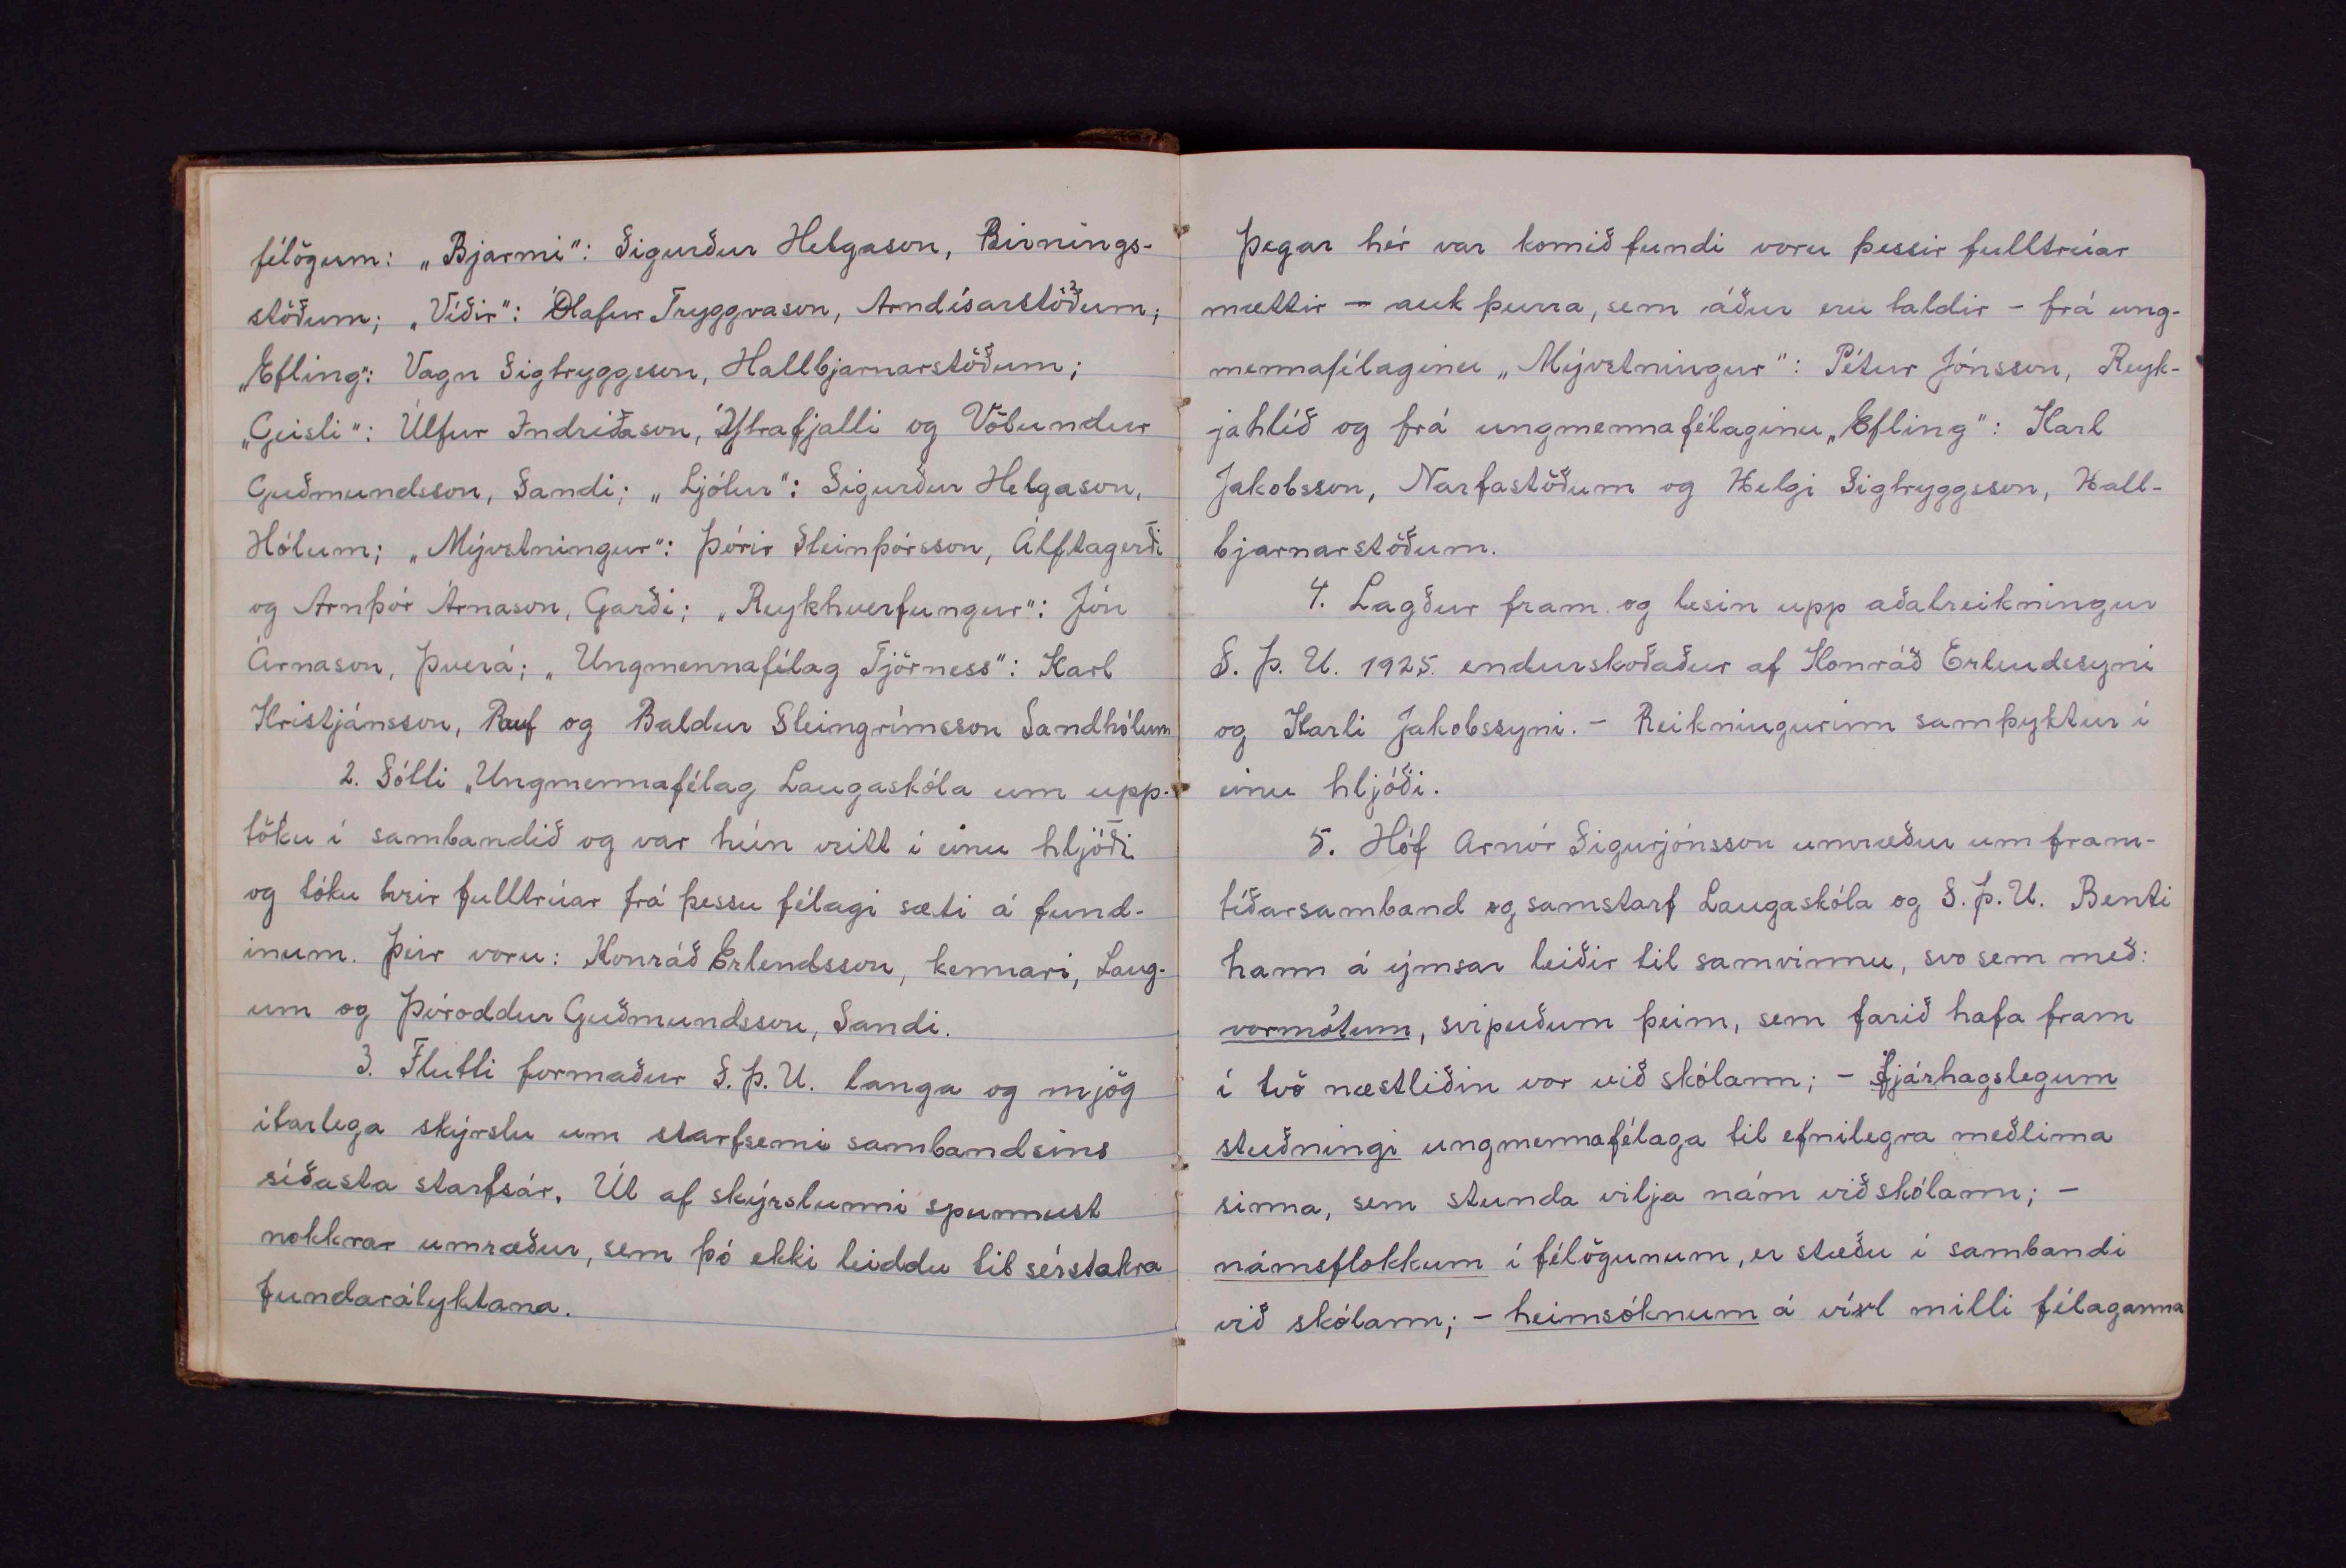 félögum: „Bjarmi“: Sigurður Helgason, Birnings-
stöðum; „Víðir“: Ólafur Tryggvason, Arndísarstöðum;
„Efling“: Vagn Sigtryggsson, Hallbjarnarstöðum;
„Geisli“: Úlfur Indriðason, Ytrafjalli og Völundur
Guðmundsson, Sandi; „Ljótur“: Sigurður Helgason,
Hólum; „Mývetningur“: Þórir Steinþórsson, Álftagerði
og Arnþór Árnason, Garði; „Reykhverfungur“: Jón
Árnason, Þverá; „Ungmennafélag Tjörness“: Karl
Kristjánsson, Rauf og Baldur Steingrímsson Sandhólum
2. Sótti „Ungmennafélag Laugaskóla um upp-
töku í sambandið og var hún veitt í einu hljóði
og tóku tveir fulltrúar frá þessu félagi sæti á fund-
inum. Þeir voru: Konráð Erlendsson, kennari, Laug-
um og Þóroddur Guðmundsson, Sandi.
3. Flutti formaður S. Þ. U. langa og mjög
ítarlega skýrslu um starfsemi sambandsins
síðasta starfsár. Út af skýrslunni spunnust
nokkrar umræður, sem þó ekki leiddu til sérstakra
fundarályktana.
Þegar hér var komið fundi voru þessir fulltrúar
mættir – auk þeirra, sem áður eru taldir – frá ung-
mennafélaginu „Mývetningur“: Pétur Jónsson, Reyk-
jahlíð og frá ungmennafélaginu „Efling“: Karl
Jakobsson, Narfastöðum og Helgi Sigtryggsson, Hall-
bjarnarstöðum.
4. Lagður fram og lesin upp aðalreikningur
S. Þ. U. 1925. endurskoðaður af Konráð Erlendssyni
og Karli Jakobssyni. – Reikningurinn samþyktur í
einu hljóði.
5. Hóf Arnór Sigurjónsson umræður um fram-
tíðarsamband og samstarf Laugaskóla og S. Þ. U. Benti
hann á ýmsar leiðir til samvinnu, svo sem með:
vormótum, svipuðum þeim, sem farið hafa fram
í tvö næstliðin vor við skólann; – fjárhagslegum
stuðningi ungmennafélaga til efnilegra meðlima
sinna, sem stunda vilja nám við skólann; –
námsflokkum í félögunum, er stæðu í sambandi
við skólann; – heimsóknum á víxl milli félaganna